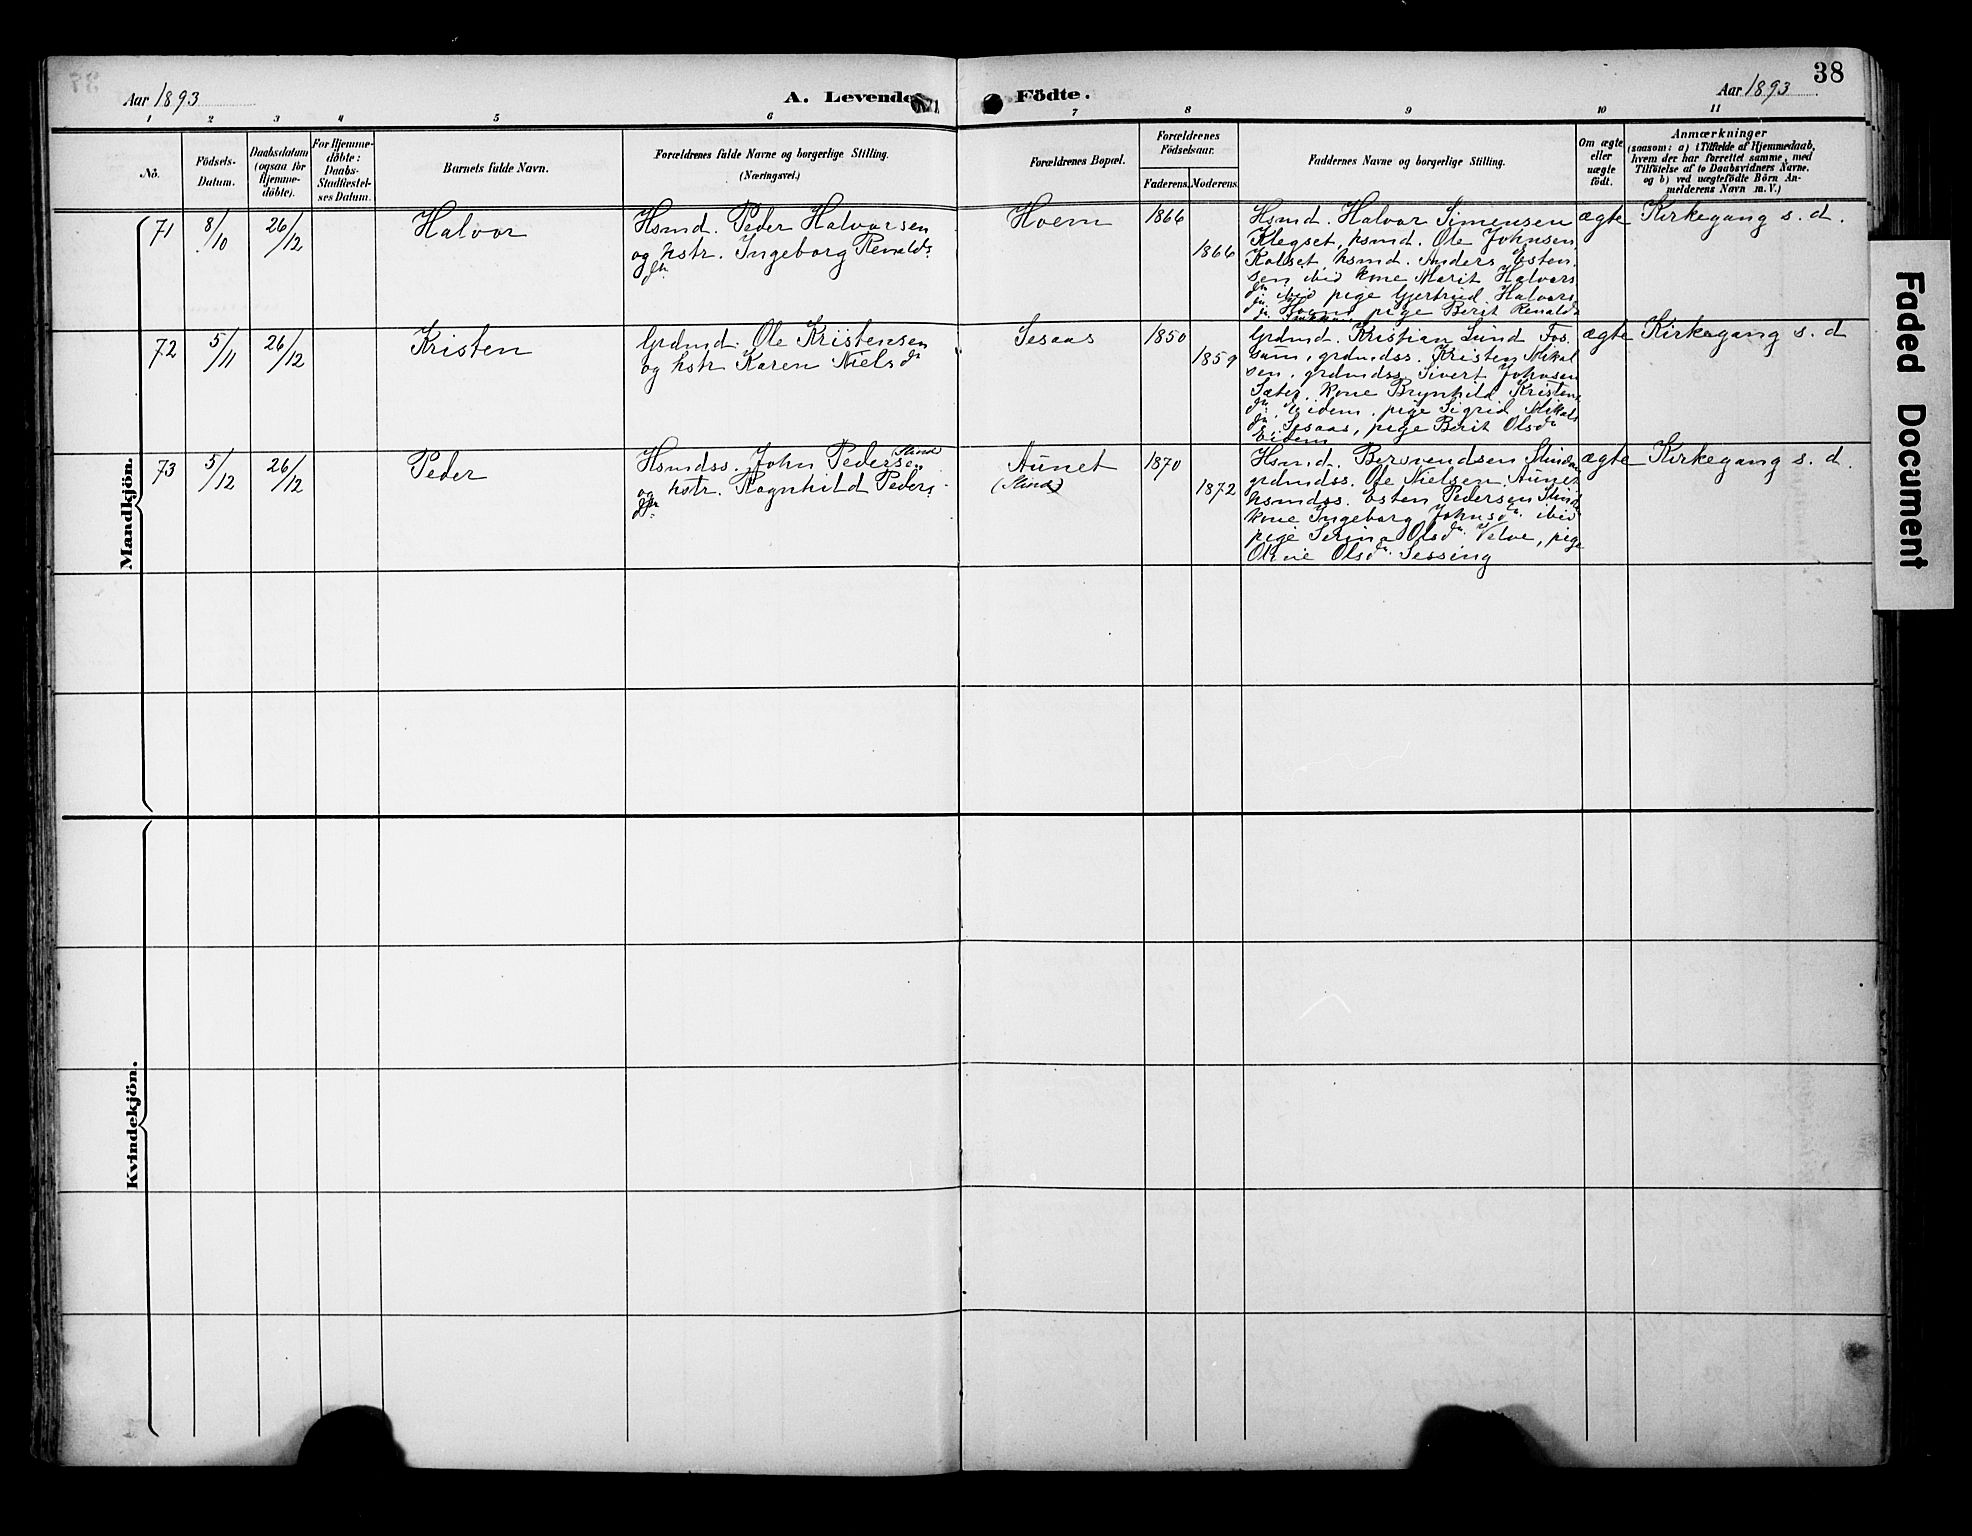 38
Aar 1893
A. Levende Födte.
Aar 1893
1 2 3 4 5 6 7 8 9 10 11
No.
Födsels-
Datum.
Daabsdatum
(ogsaa for
Hjemme-
döbte).
For Hjemme-
döbte:
Daabs-
Stadfæstel-
ses Datum.
Barnets fulde Navn.
Forældrenes fulde Navne og borgerlige Stilling.
(Næringsvei.)
Forældrenes Bopæl.
Forældrenes
Födselsaar.
Faderens.
Moderens.
Faddernes Navne og borgerlige Stilling.
Om ægte
eller
uægte
födt.
Anmærkninger
(saasom: a) i Tilfælde af Hjemmedaab,
hvem der har forrettet samme, med
Tilföielse af to Daabsvidners Navne,
og b) ved uægtefödte Börn An-
melderens Navn m. V.)
Mandkjön.
71
8/10
26/12
Halvor
Hsmd. Peder Halvorsen
og hstr. Ingeborg Renalds
dtr.
Hoem
1866
1866
Hsmd. Halvor Simensen
Klegset, hsmd. Ole Johnsen
Kolset hsmd. Anders Esten
sen ibid kone Marit Halvors
dtr ibid pige Gjertrud Halvors
pige Berit Renalds
ægte
Kirkegang s. d.
72
5/11
26/12
Kristen
Grdmd. Ole Kristensen
og hstr Karen Nielsdtr
Sesaas
1850
1859
Grdmd. Kristian Lund Fos.
sum, grdmdss. Kristen Mikal
sen, grdmdss Sivert Johnsen
Sæter, kone Brynhild Kristens
dtr. Eidem, pige Sigrid Mikals
dtr. Sesaas, pige Berit Olsdtr
Eidem
ægte
Kirkegang s. d
73
5/12
26/12
Peder
Hsmdss. John Pedersen
og hstr. Ragnhild Peders
dtr.
Aunet
1870
1872
Hsmd. Bersvendsen
grdmdss. Ole Nielsen Aunet
hsmdss. Esten Pedersen
kone Ingeborg Johnsdtr ibid
pige Serina Olsdtr Velve, pige
Oline Olsdtr. Sessing
ægte
Kirkegang s. d.
Kvindekjön.
Faded Document